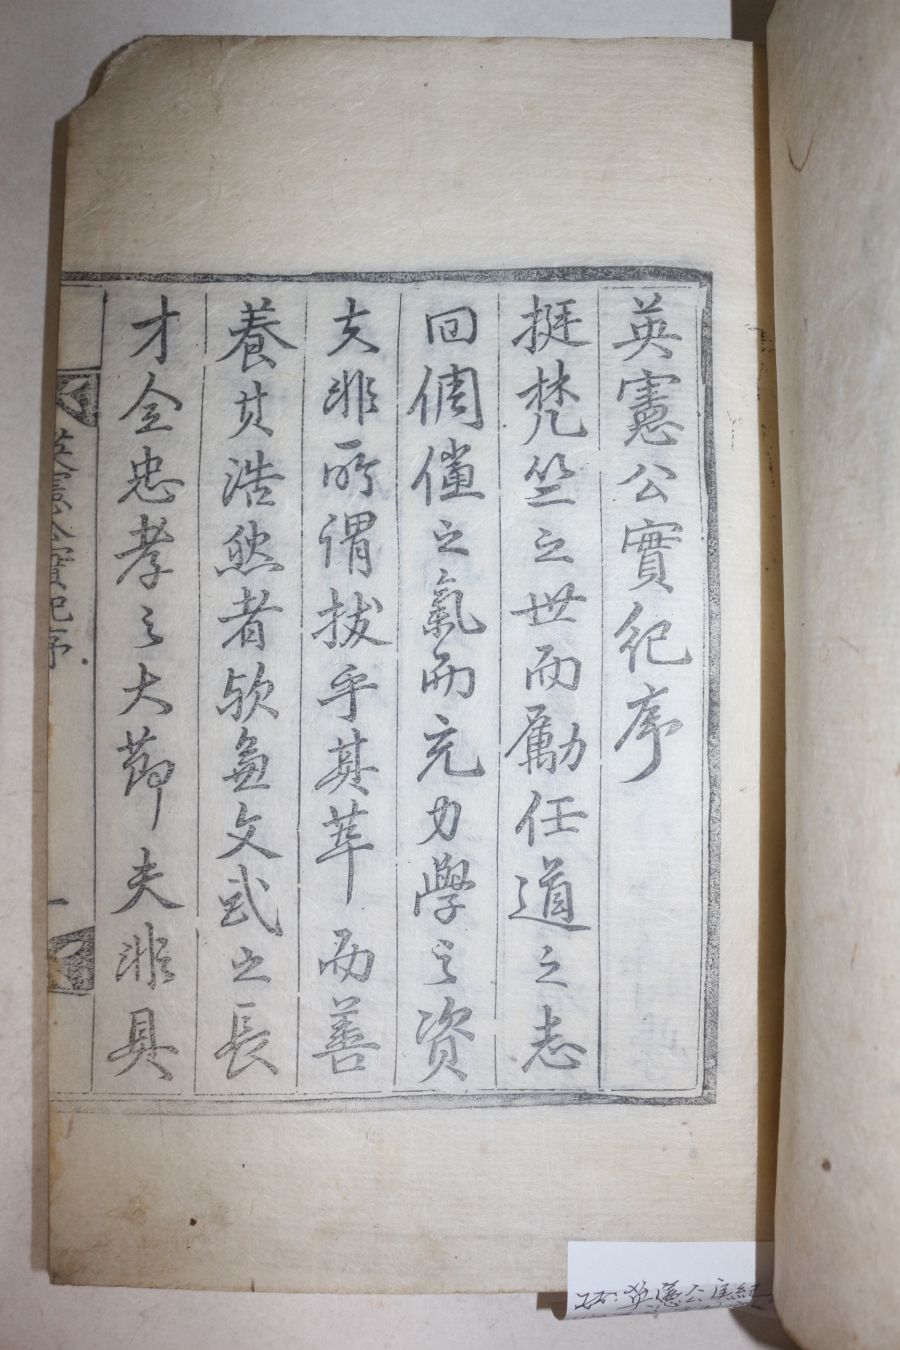 英憲公實紀序
挺梵竺之世而勵任道之志
回倜儻之氣而充力學之資
夫非所謂拔乎其萃而善
養其浩然者歟兼文武之長
才全忠孝之大節夫非具
英憲公實紀序
一
英憲公實紀